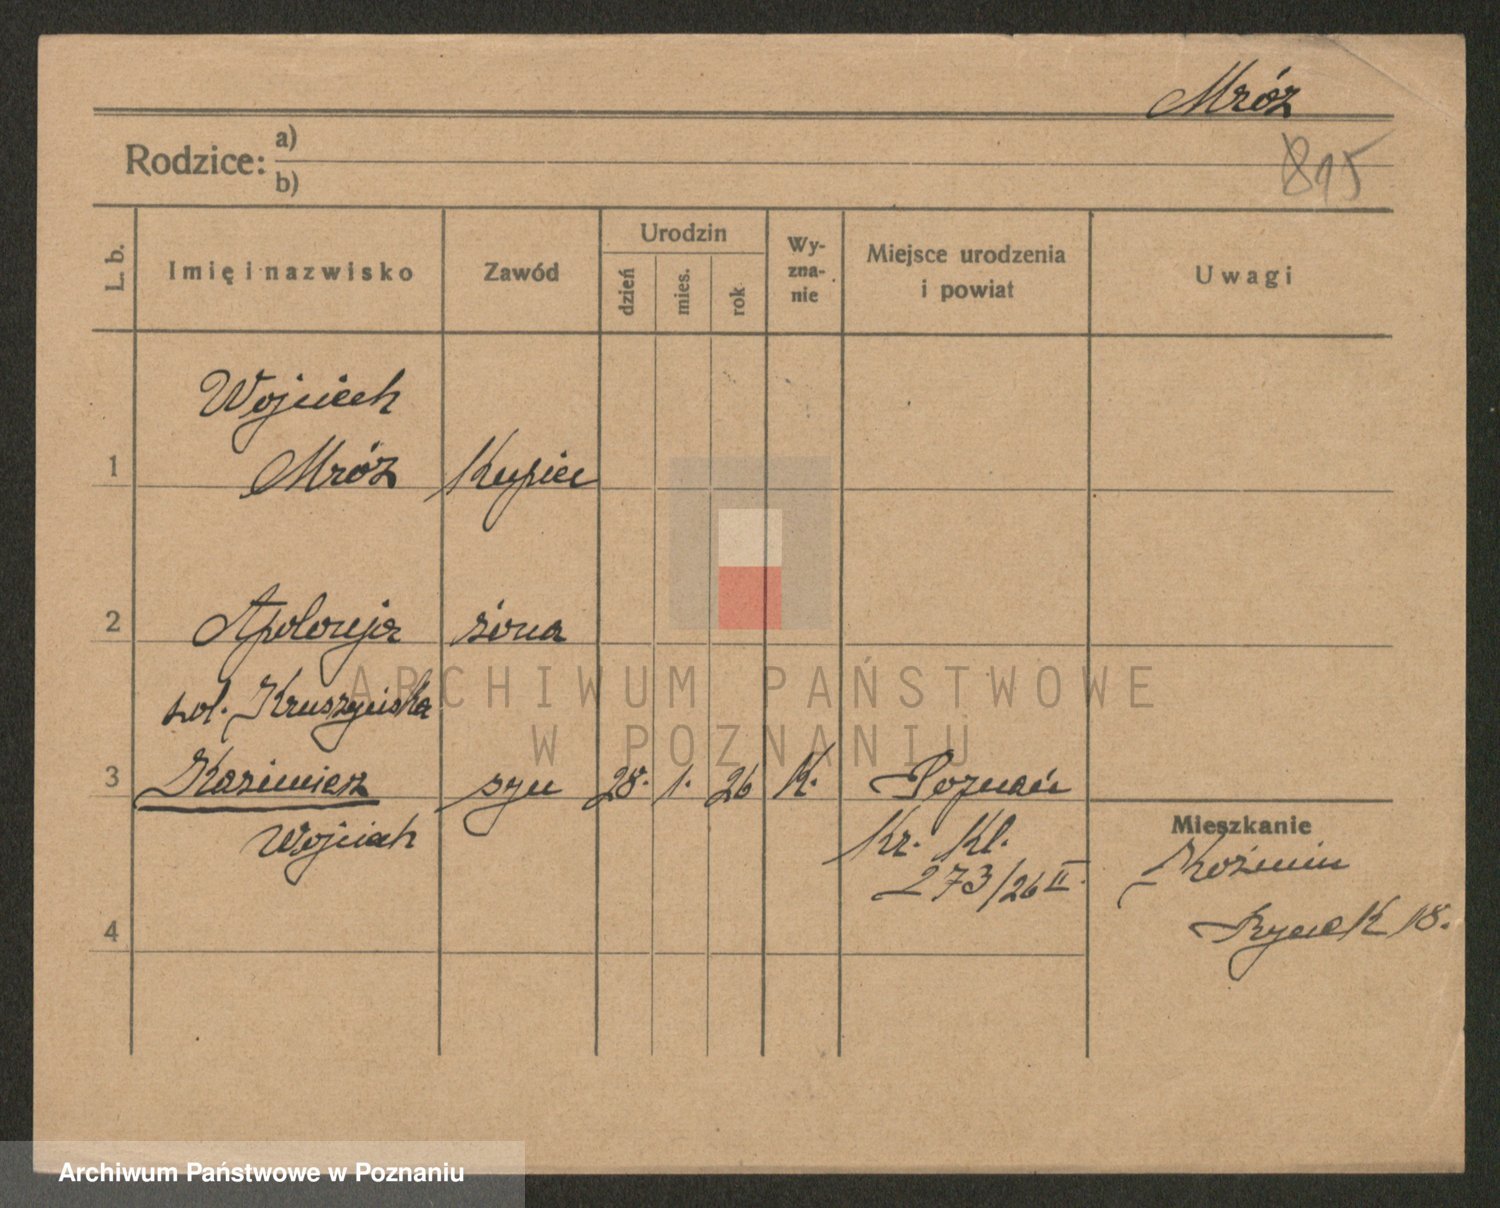 Mróz
815
Rodzice: a)
b)
L. b.
Imię i nazwisko
Zawód
Urodzin
dzień
mies.
rok
Wy-
zna-
nie
Miejsce urodzenia
i powiat
Uwagi
Wojciech
1 Mróz Kupiec
2 Apolonja żona
Kruszyńska
3 Kazimierz syn 28. 1. 26 K. Poznań
Mieszkanie
Wojciech Kr. Kl. Koźmin
273/26 II.
4 Rynek 18.
ARCHIWUM PAŃSTWOWE
W POZNANIU
Archiwum Państwowe w Poznaniu